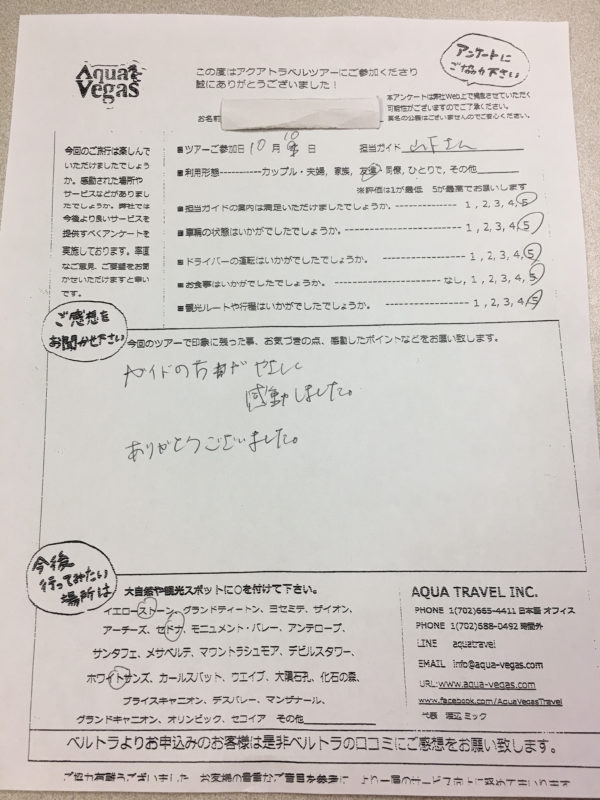 Aqua
Vegas
この度はアクアトラベルツアーにご参加くださり
誠にありがとうございました！
アンケートに
ご協力下さい
本アンケートは弊社Web上で掲載させていただく
可能性がございますのでご了承ください。
実名の公開はございませんのでご安心ください。
お名前
今回のご旅行は楽しんで
いただけましたでしょう
か。感動された場所や
サービスなどがありまし
たでしょうか。弊社では
今後より良いサービスを
提供すべくアンケートを
実施しております。率直
なご意見、ご要望をお聞
かせいただけますと幸い
です。
■ツアーご参加日 10 月 10 日 担当ガイド 山下さん
■利用形態-----------カップル・夫婦, 家族, 友達, 同僚, ひとりで, その他
※評価は1が最低 5が最高でお願いします
■担当ガイドの案内は満足いただけましたでしょうか。 --------------- 1 , 2, 3, 4, 5
■車輌の状態はいかがでしたでしょうか。 ------------------------- 1 , 2, 3, 4, 5
■ドライバーの運転はいかがでしたでしょうか。 ------------------- 1 , 2, 3, 4, 5
■お食事はいかがでしたでしょうか。 ------------------------- なし, 1, 2, 3, 4, 5
■観光ルートや行程はいかがでしたでしょうか。 ------------------- 1 , 2, 3, 4, 5
ご感想を
お聞かせ下さい
今回のツアーで印象に残った事、お気づきの点、感動したポイントなどをお願い致します。
ガイドの方々が やさしく
感動しました。
ありがとうございました。
今後
行ってみたい
場所は
大自然や観光スポットに○を付けて下さい。
イエローストーン、グランドティートン、ヨセミテ、ザイオン、
アーチーズ、セドナ、モニュメント・バレー、アンテロープ、
サンタフェ、メサベルデ、マウントラシュモア、デビルスタワー、
ホワイトサンズ、カールスバット、ウエイブ、大隕石孔、化石の森、
ブライスキャニオン、デスバレー、マンザナール、
グランドキャニオン、オリンピック、セコイア その他
AQUA TRAVEL INC.
PHONE 1(702)665-4411 日本語 オフィス
PHONE 1(702)588-0492 時間外
LINE aquatravel
EMAIL info@aqua-vegas.com
URL:www.aqua-vegas.com
www.facebook.com/AquaVegasTravel
代表 渡辺 ミック
ベルトラよりお申込みのお客様は是非ベルトラの口コミにご感想をお願い致します。
ご協力有難うございました。お客様の貴重なご意見を参考に、より一層のサービス向上に努めてまいります